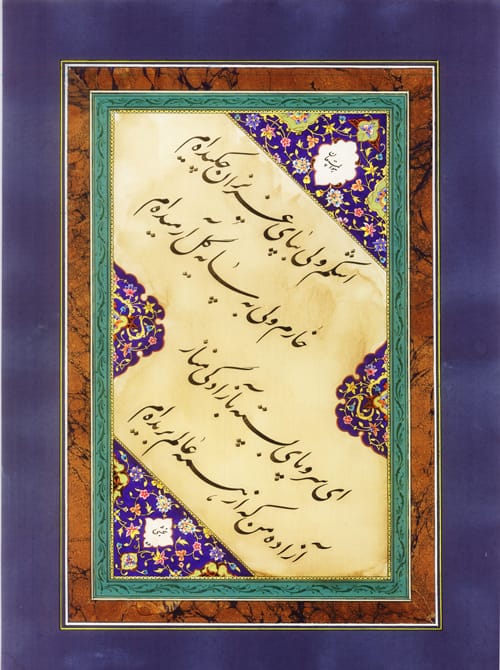 اشکم ولی بپای عزیزان چکیده‌ام
خارم ولی به سایه گل آرمیده‌ام
ای سرو پای بسته بآزادگی مناز
آزاده من که از همه عالم بریده‌ام